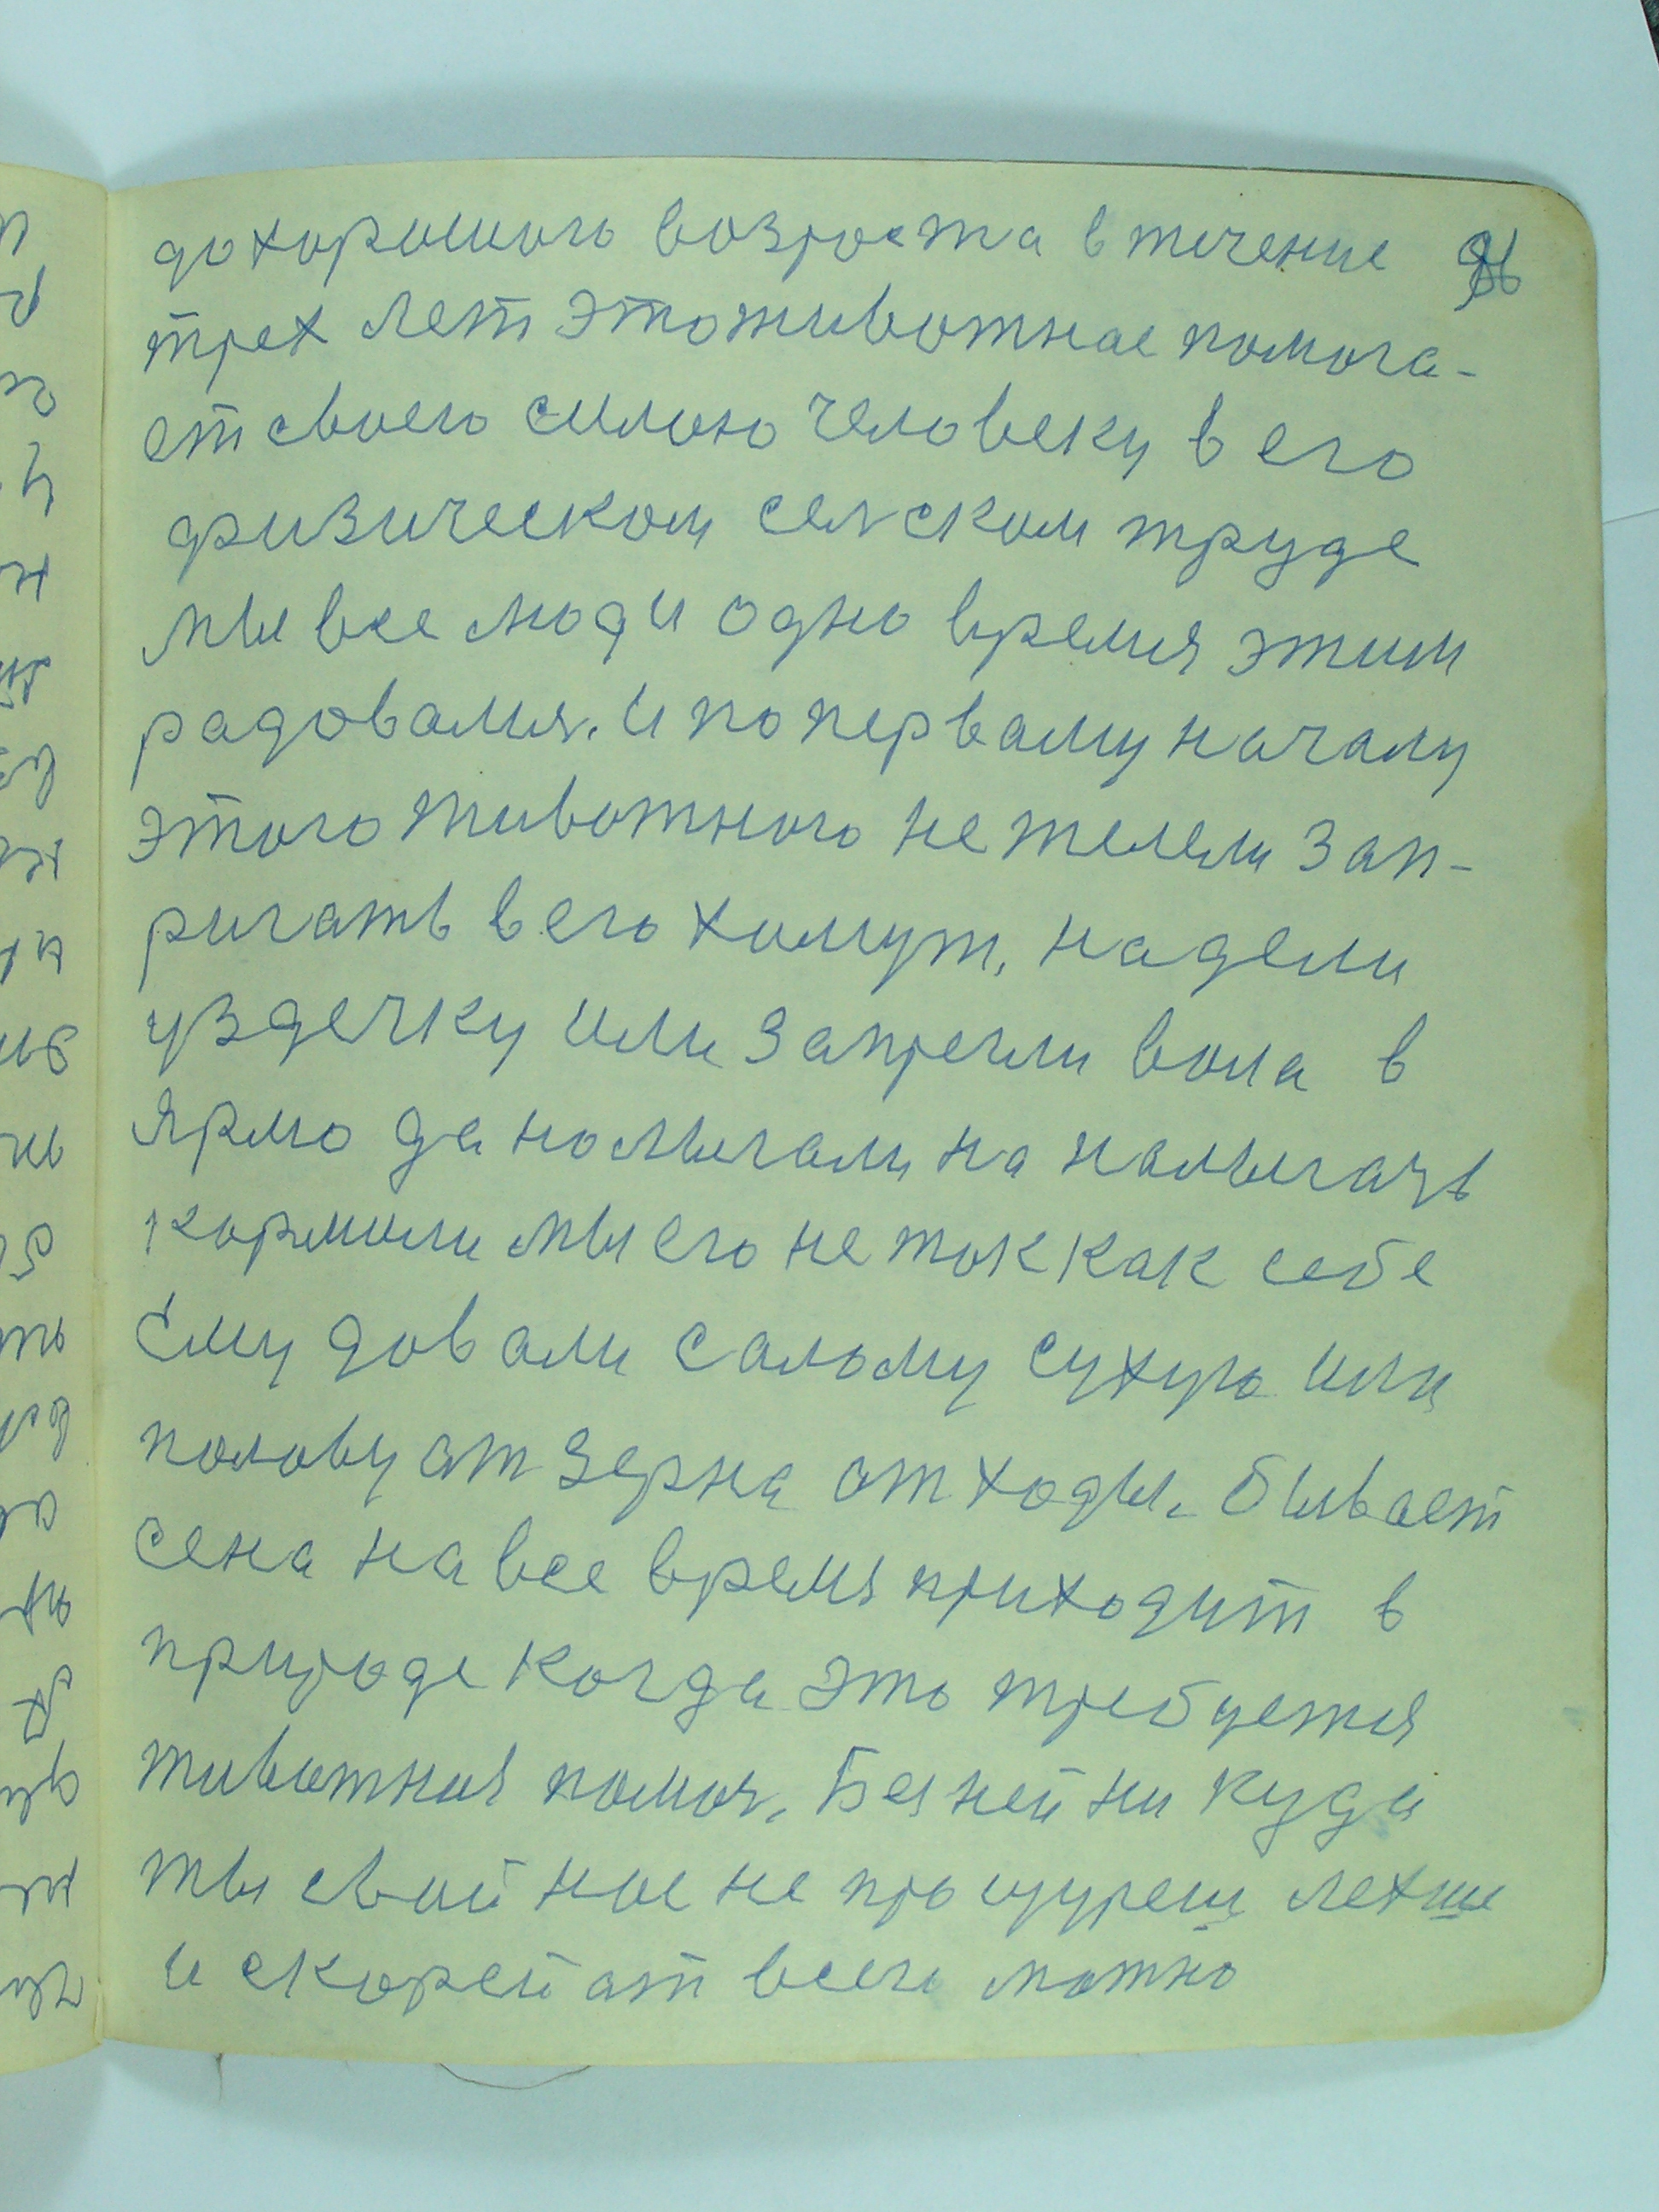 до хорошого возроста в течение 86
трех лет это животное помога-
ет своего силою человеку в его
физическом селском труде
мы все люди одно время этим
радовались. И по первому началу
этого животного не желели зап-
ричать в его хомут, надели
уздечку или запрегли вола в
ярмо да номыгали на налыгачь
кормили мы его не ток как себе
Ему довали салому сухую или
полову от зерна отходы. бывает
сена на все время приходит в
природе когда это требуется
животная помоч. Без ней ни куда
ты свой нос не прощуреш легше
и скорей от всего можно